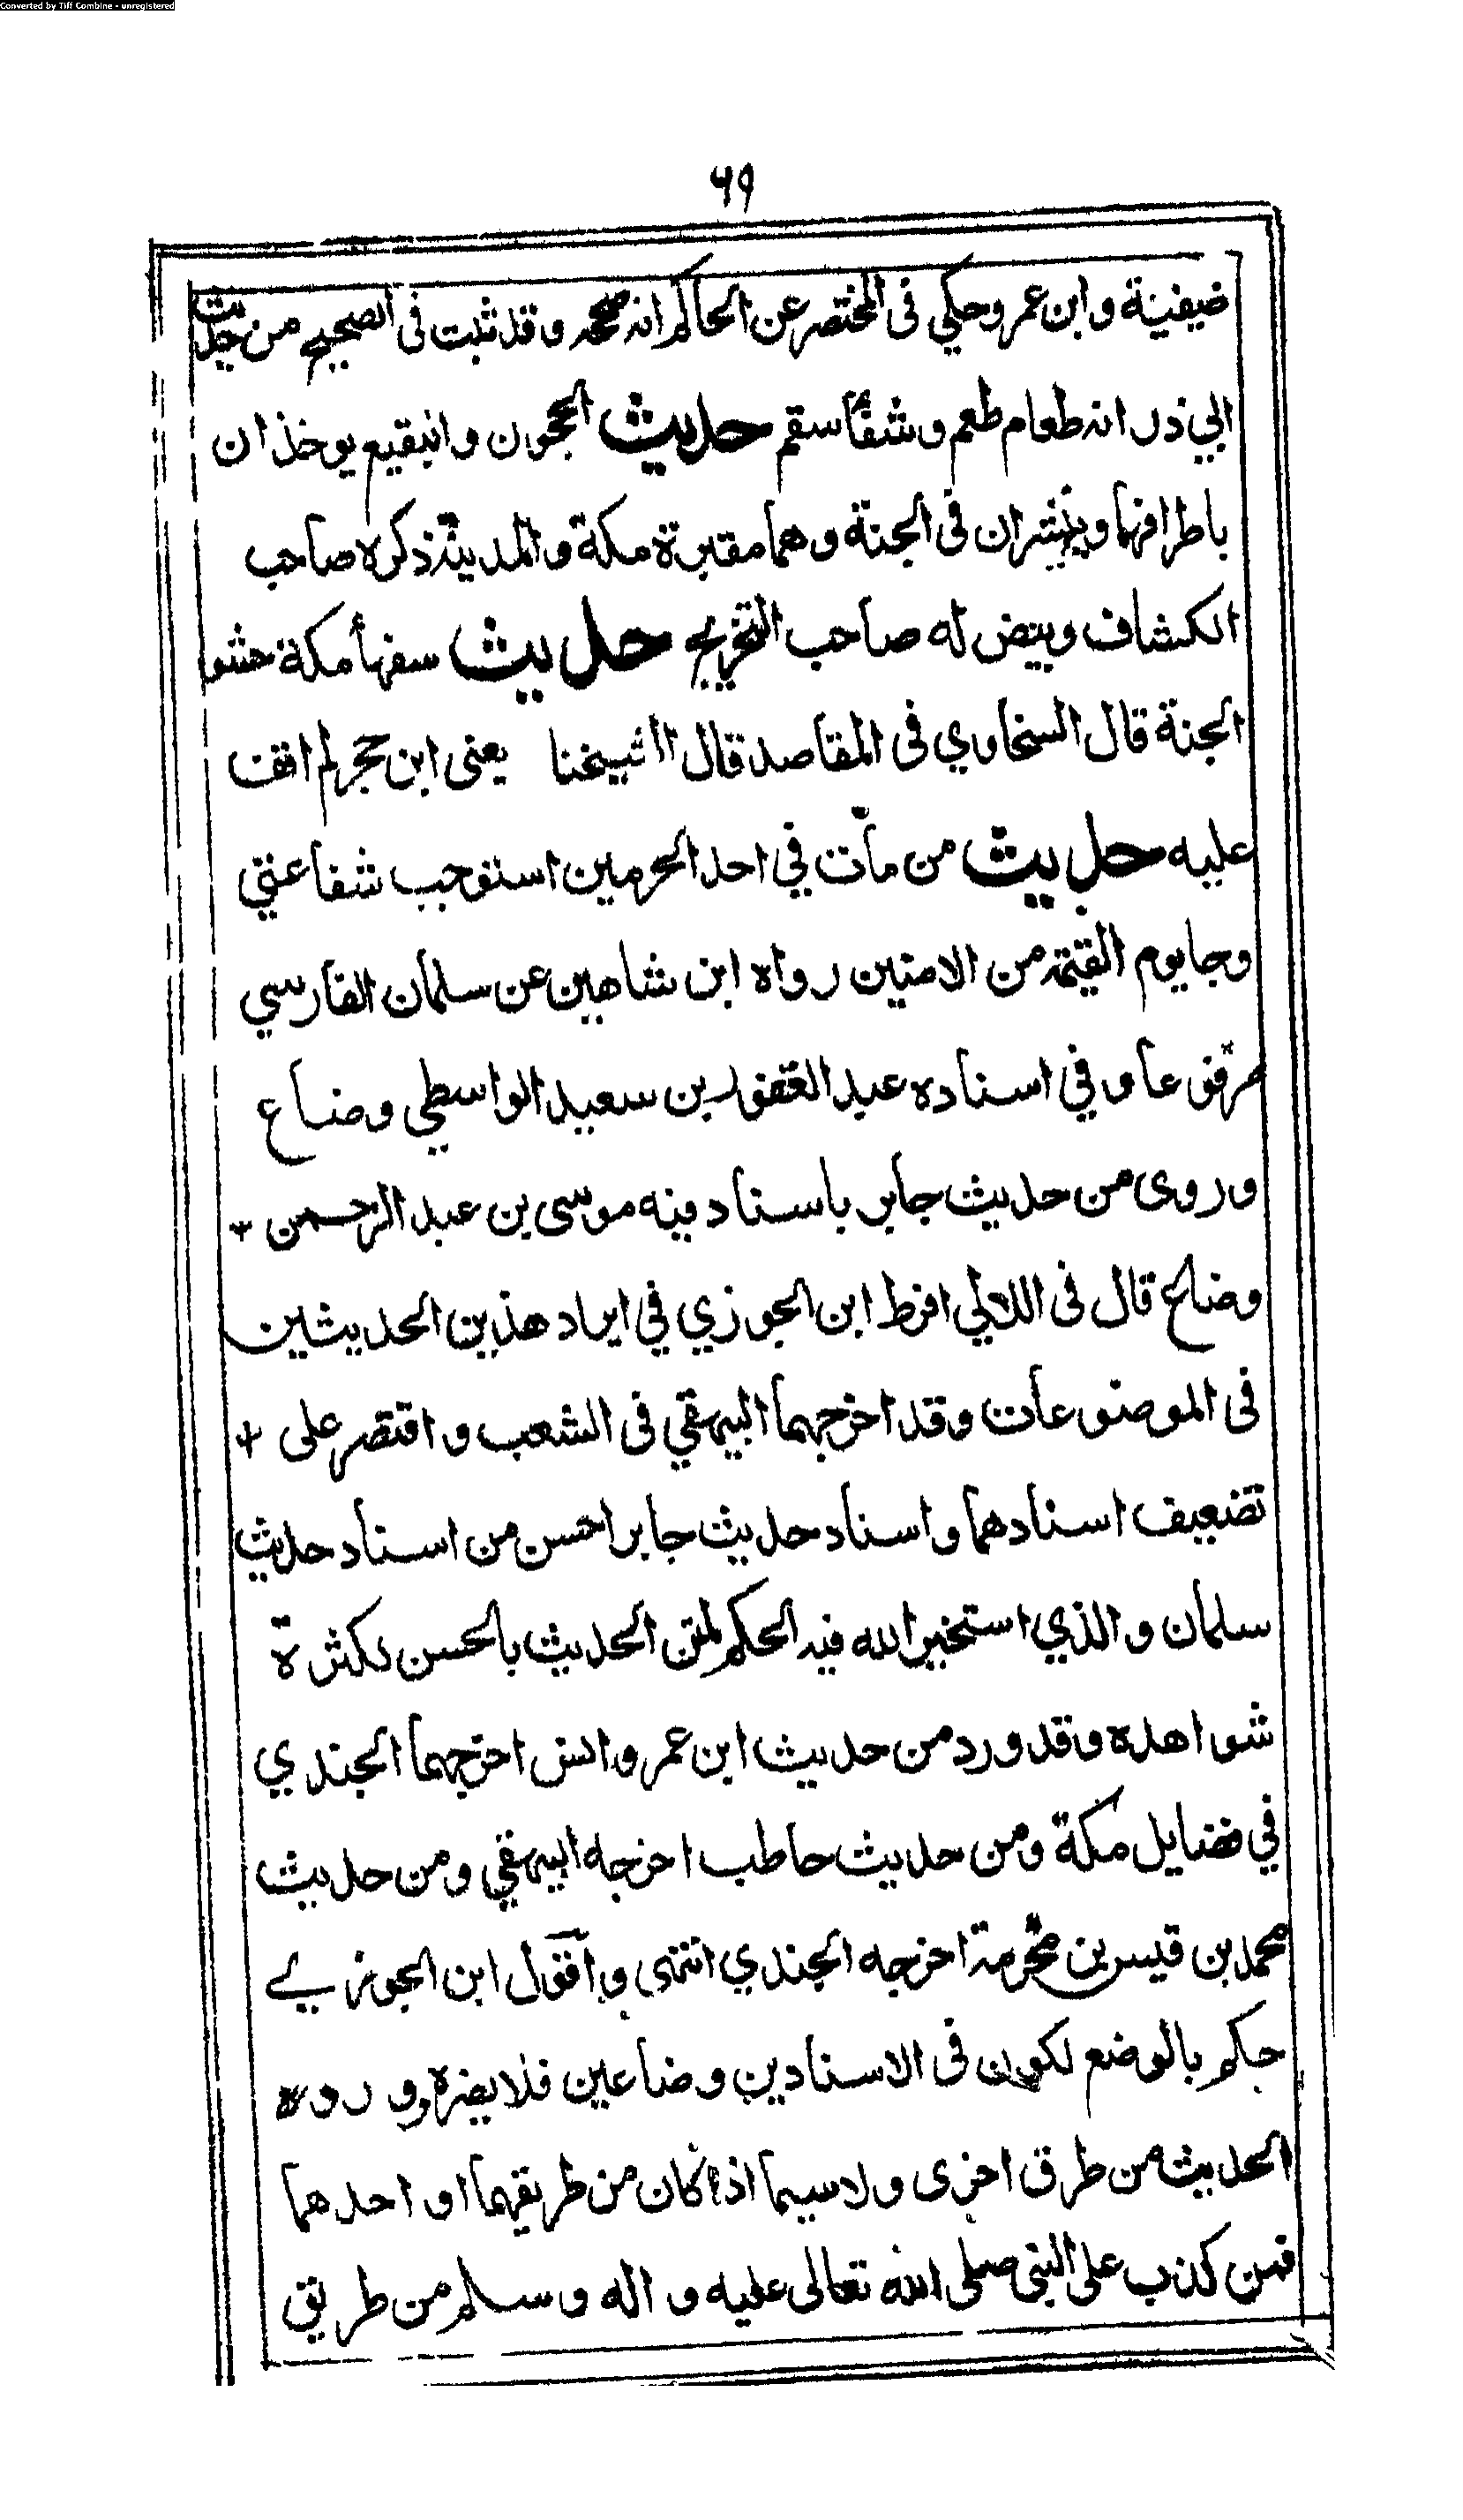 Converted by Tiff Combine - unregistered
٦٩
ضيفنية وابن عمر وحكي في المختصر عن الحاكم انه صححه وقد ثبت في الصحيح من حديث
ابي ذر انه طعام طعم وشفأ سقم حديث الحجون والبقيع يوخذان
باطرافهما وينثران في الجنة وهما مقبرة مكة والمدينة ذكره صاحب
الكشاف وبيض له صاحب التخريج حديث سفهأ مكة حشو
الجنة قال السخاوي في المقاصد قال شيخنا يعني ابن حجر لم اقف
عليه حديث من مات في احد الحرمين استوجب شفاعتي
وجا يوم القيمة من الامنين رواه ابن شاهين عن سلمان الفارسي
مرفوعا وفي اسناده عبد الغفور بن سعيد الواسطي وضاع
وروى من حديث جابر باسناد فيه موسى بن عبد الرحمن
وضاع قال في اللالي افرط ابن الجوزي في ايراد هذين الحديثين
في الموضوعات وقد اخرجهما البيهقي في الشعب واقتصر على
تضعيف اسنادهما واسناد حديث جابر احسن من اسناد حديث
سلمان والذي استخير الله فيه الحكم لمتن الحديث بالحسن لكثرة
شواهده وقد ورد من حديث ابن عمر وانس اخرجهما الجندي
في فضايل مكة ومن حديث حاطب اخرجه البيهقي ومن حديث
محمد بن قيس بن مخرمة اخرجه الجندي انتهى واقول ابن الجوزي
حكم بالوضع لكون في الاسنادين وضاعين فلا يضره ورود
الحديث من طرق اخرى ولا سيما اذا كان من طريقهما او احدهما
فمن كذب على النبي صلى الله تعالى عليه واله وسلم من طريق